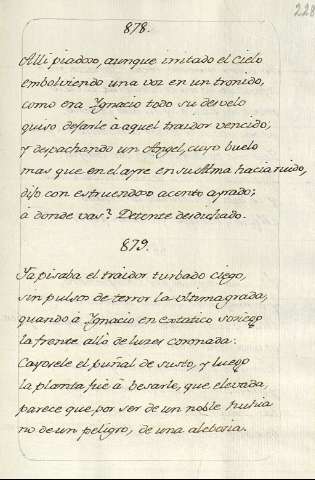 228
878.
Alli piadoso, aunque irritado el cielo
embolviendo una voz en un tronido,
como era Ygnacio todo su desvelo
quiso dejarle à aquel traidor vencido;
y despachando un Angel, cuyo buelo
mas que en el ayre en su Alma hacia ruido,
dijo con estruendoso acento ayrado;
à donde vas? Detente desdichado.
879.
Ya pisaba el traidor turbado ciego,
sin pulsos de terror la ultima grada,
quando à Ygnacio en extatico sosiego
la frente allò de luzes coronada.
Cayosele el puñal de susto, y luego
la planta fuè à besarle, que elevada,
parece que por ser de un noble huhia
no de un peligro, de una alebosia.